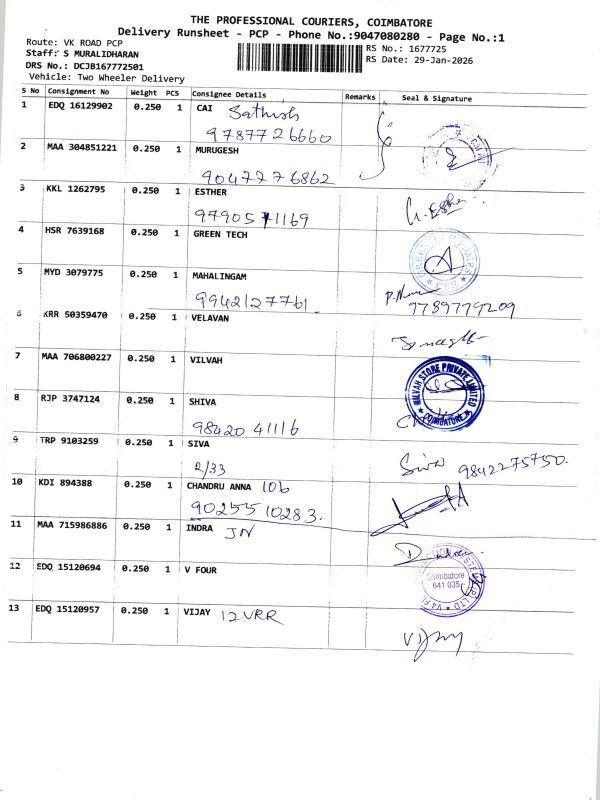 THE PROFESSIONAL COURIERS, COIMBATORE
Delivery Runsheet - PCP - Phone No.:9047080280 - Page No.:1
Route: VK ROAD PCP
RS No.: 1677725
Staff: S MURALIDHARAN
RS Date: 29-Jan-2026
DRS No.: DCJB167772501
Vehicle: Two Wheeler Delivery
S No Consignment No Weight PCS Consignee Details Remarks Seal & Signature
1 EDQ 16129902 0.250 1 CAI Sathish
9787726660
2 MAA 304851221 0.250 1 MURUGESH
9047276862
3 KKL 1262795 0.250 1 ESTHER
9790571169
4 HSR 7639168 0.250 1 GREEN TECH
5 MYD 3079775 0.250 1 MAHALINGAM
9942127761
9789779209
6 KRR 50359470 0.250 1 VELAVAN
7 MAA 706800227 0.250 1 VILVAH
VILVAH STORE PRIVATE LIMITED
COIMBATORE
8 RJP 3747124 0.250 1 SHIVA
98420 41116
9 TRP 9103259 0.250 1 SIVA
2/33 Siva 9842275750.
10 KDI 894388 0.250 1 CHANDRU ANNA 106
9025510283.
11 MAA 715986886 0.250 1 INDRA JN
12 EDQ 15120694 0.250 1 V FOUR
Coimbatore
641 035
13 EDQ 15120957 0.250 1 VIJAY 12 VRR
Vijay